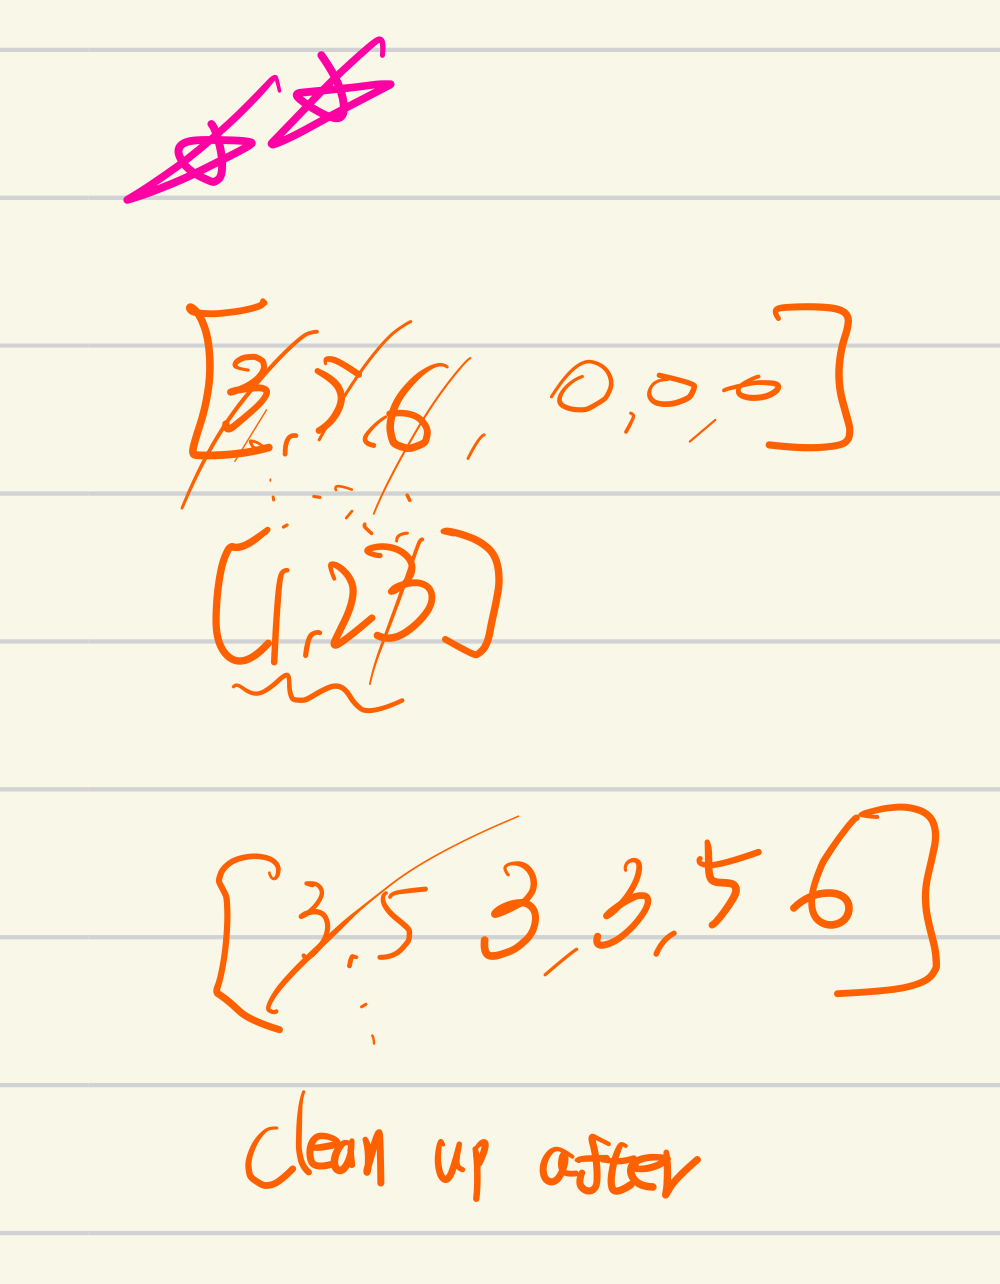 [3, 5, 6, 0, 0, 0]
[1, 2 3]
[3, 5 3, 3, 5 6]
clean up after